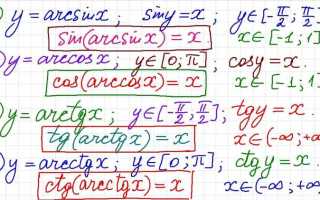 ) y=arcsinx; siny=x; y∈[-π/2; π/2]
sin(arcsinx)=x. x∈[-1; 1]
) y=arccosx; y∈[0; π]; cosy=x.
cos(arccosx)=x x∈[-1; 1]
) y=arctgx; y∈[-π/2; π/2]; tgy=x.
tg(arctgx)=x x∈(-∞; +∞
) y=arcctgx; y∈[0; π]; ctgy=x.
ctg(arcctgx)=x x∈(-∞; +∞